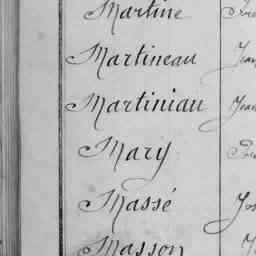 Martine
Martineau
Martiniau Jean
Mary
Massé
Masson